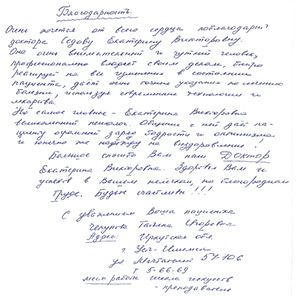 Благодарность.
Очень хочется от всего сердца поблагодарить
доктора Седову Екатерину Викторовну.
Она очень внимательный и чуткий человек,
профессионально владеет своим делом, быстро
реагирует на все изменения в состоянии
пациента, даёт очень точные указания по лечению
болезни, используя современные технологии и
лекарства.
Но самое главное - Екатерина Викторовна
великолепный психолог. Общение с ней даёт па-
циенту огромный заряд бодрости и оптимизма
и конечно же надежду на выздоровление!
Большое спасибо Вам наш Доктор
Екатерина Викторовна. Здоровья Вам и
успехов в Вашем нелёгком, но благородном
труде. Будьте счастливы!!!
С уважением Ваша пациентка
Татьяна
Адрес: Иркутская обл.
г. Усть-Илимск
ул. 54-106
т. 5-66-69
место работы школа искусств
- преподаватель